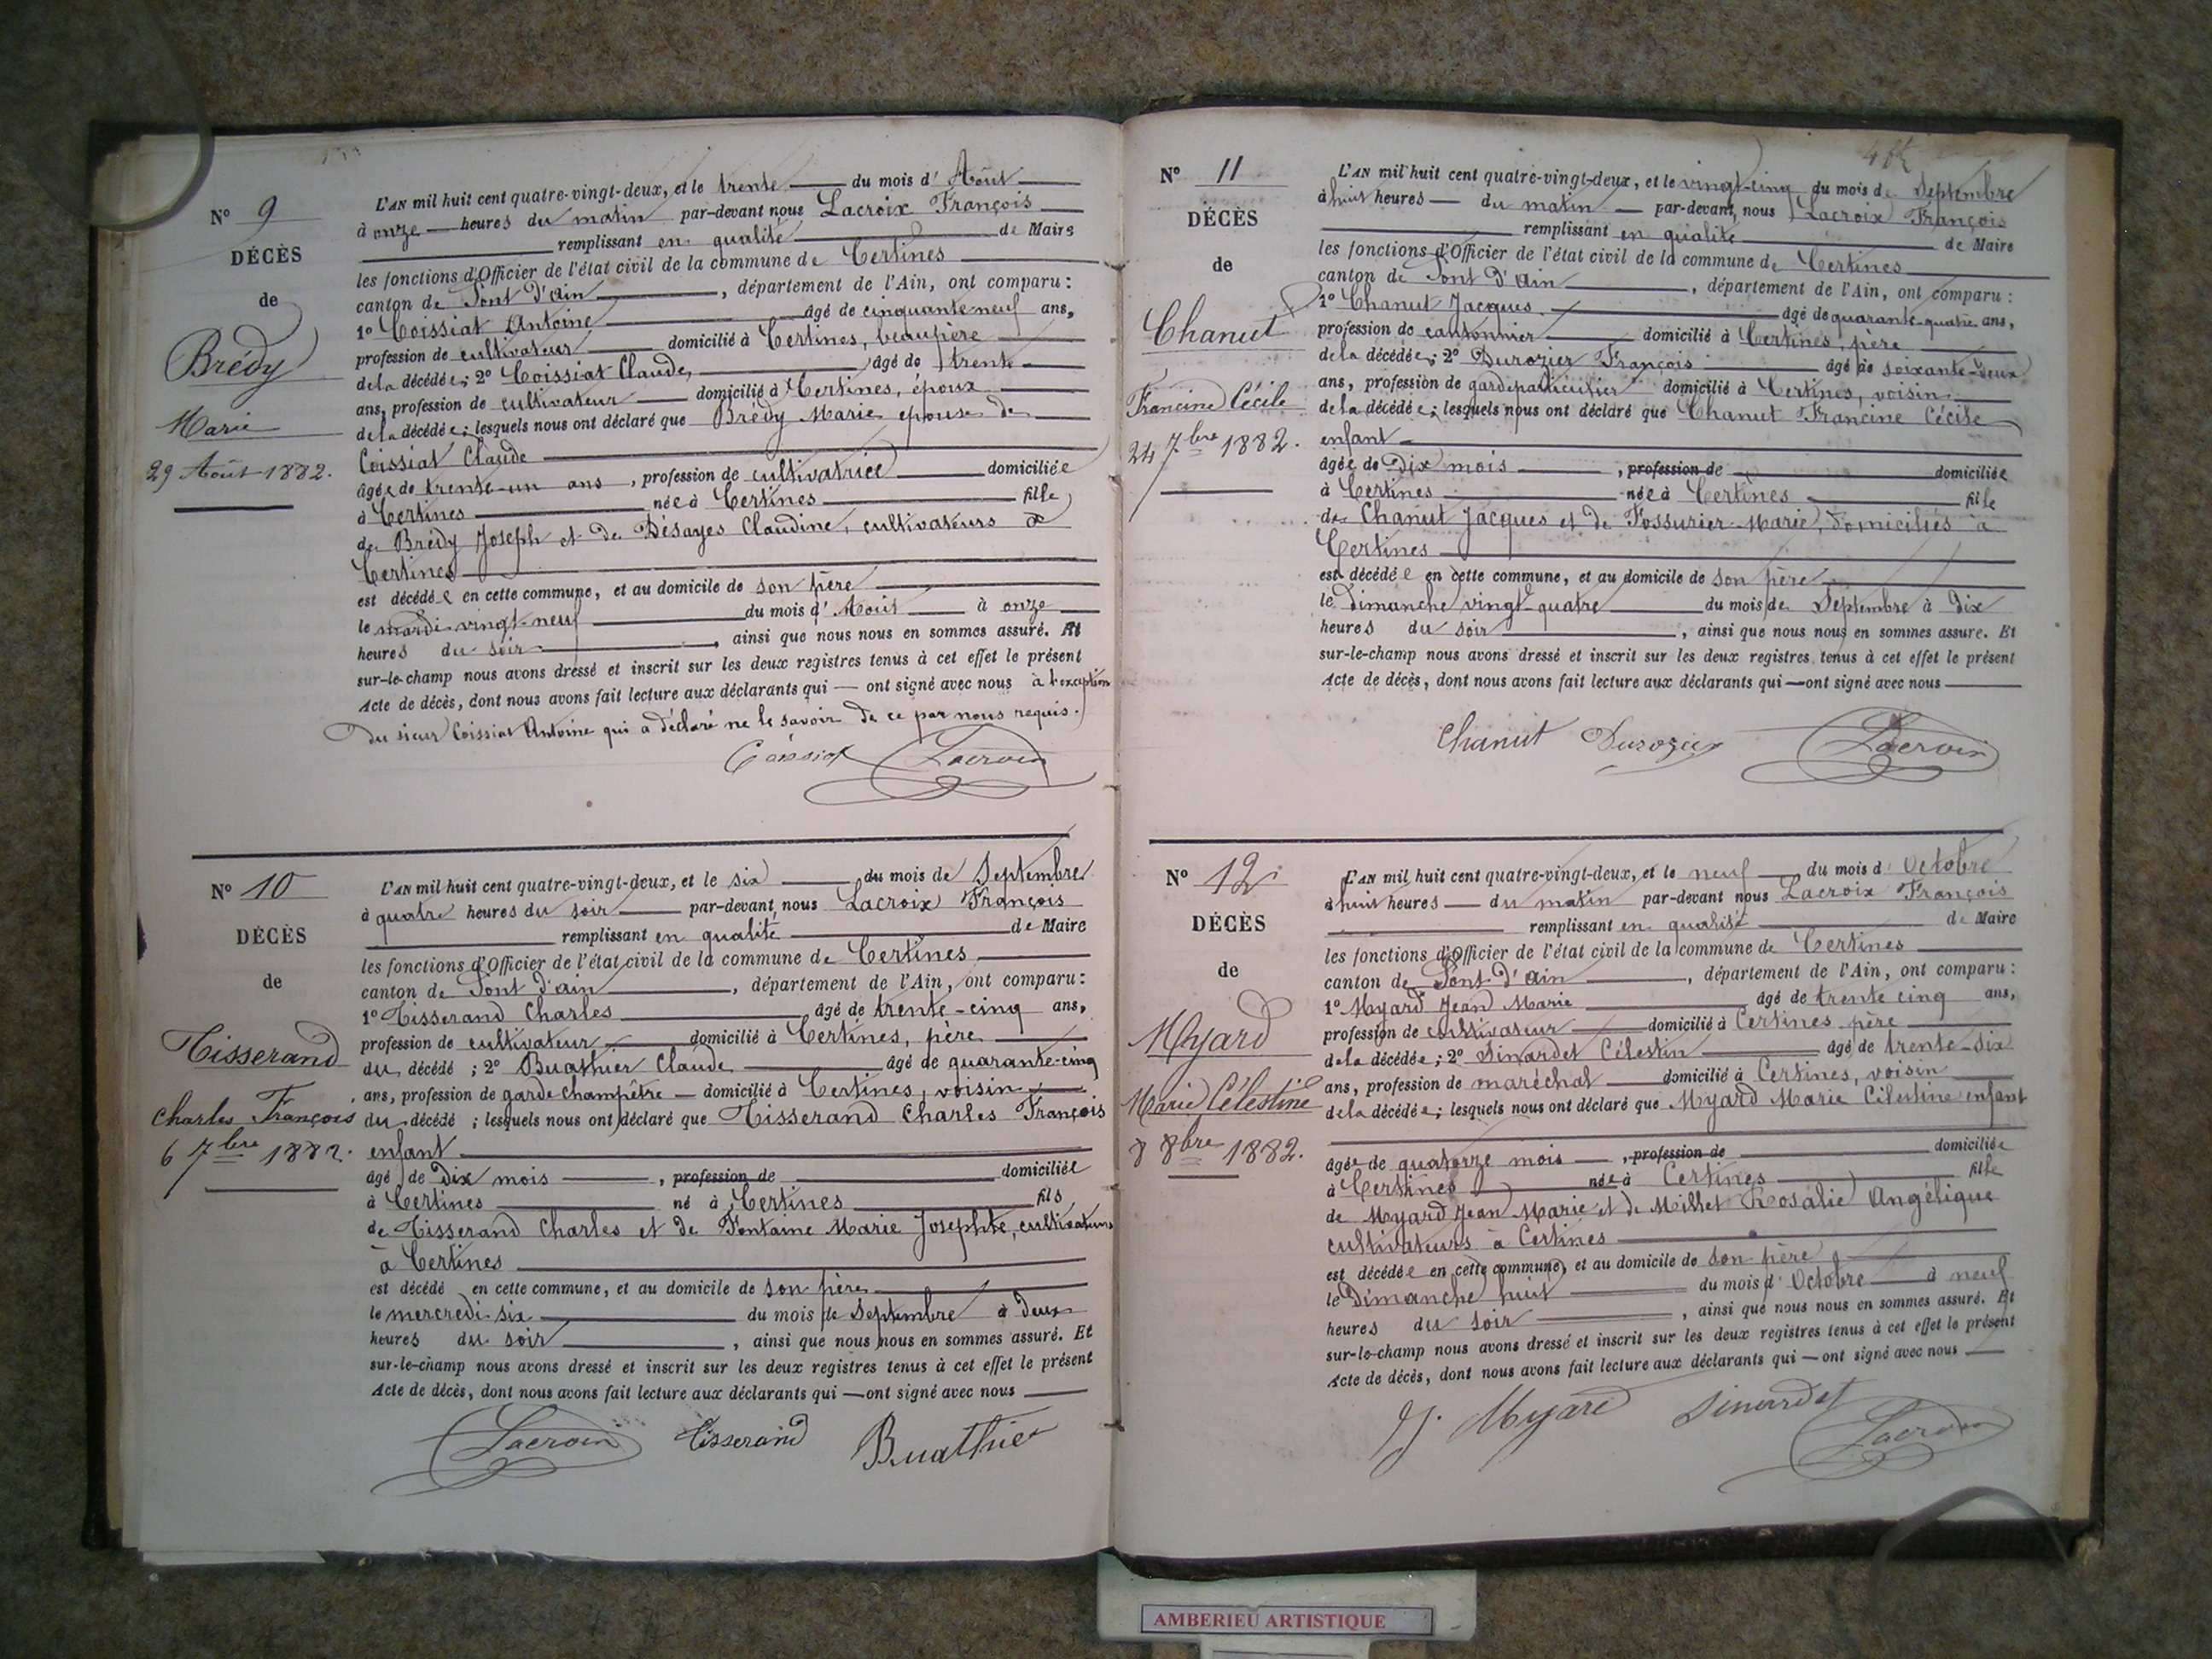 N° 9
DÉCÈS
de
Brédy
Marie
29 Août 1882.
L'AN mil huit cent quatre-vingt-deux, et le trente du mois d' Août
à onze heures du matin par-devant nous Lacroix François
remplissant en qualité de Maire
les fonctions d'Officier de l'état civil de la commune de Certines
canton de Pont d'ain, département de l'Ain, ont comparu :
1° Coissiat Antoine âgé de cinquante neuf ans,
profession de cultivateur domicilié à Certines, beaupère
de la décédée ; 2° Coissiat Claude, âgé de trente
ans, profession de cultivateur domicilié à Certines, époux
de la décédée ; lesquels nous ont déclaré que Brédy Marie épouse de
Coissiat Claude
âgée de trente-un ans, profession de cultivatrice domiciliée
à Certines née à Certines fille
de Brédy Joseph et de Désayes Claudine, cultivateurs à
Certines
est décédée en cette commune, et au domicile de son père
le mardi vingt-neuf du mois d' Août à onze
heures du soir, ainsi que nous nous en sommes assuré. Et
sur-le-champ nous avons dressé et inscrit sur les deux registres tenus à cet effet le présent
Acte de décès, dont nous avons fait lecture aux déclarants qui — ont signé avec nous à l'exception
du sieur Coissiat Antoine qui a déclaré ne le savoir de ce par nous requis.
Coissiat Lacroix
N° 10
DÉCÈS
de
Tisserand
Charles François
6 7bre 1882.
L'AN mil huit cent quatre-vingt-deux, et le six du mois de Septembre
à quatre heures du soir par-devant nous Lacroix François
remplissant en qualité de Maire
les fonctions d'Officier de l'état civil de la commune de Certines
canton de Pont d'ain, département de l'Ain, ont comparu :
1° Tisserand Charles âgé de trente-cinq ans,
profession de cultivateur domicilié à Certines, père
du décédé ; 2° Buathier Claude âgé de quarante-cinq
ans, profession de garde champêtre domicilié à Certines, voisin
du décédé ; lesquels nous ont déclaré que Tisserand Charles François
enfant
âgé de Dix mois, profession de domiciliée
à Certines né à Certines fils
de Tisserand Charles et de Fontaine Marie Josephte, cultivateurs
à Certines
est décédé en cette commune, et au domicile de son père
le mercredi six du mois de Septembre à deux
heures du soir, ainsi que nous nous en sommes assuré. Et
sur-le-champ nous avons dressé et inscrit sur les deux registres tenus à cet effet le présent
Acte de décès, dont nous avons fait lecture aux déclarants qui — ont signé avec nous
Lacroix Tisserand Buathier
N° 11
DÉCÈS
de
Chanut
Francine Cécile
24 7bre 1882.
L'AN mil huit cent quatre-vingt-deux, et le vingt-cinq du mois de Septembre
à huit heures du matin par-devant nous Lacroix François
remplissant en qualité de Maire
les fonctions d'Officier de l'état civil de la commune de Certines
canton de Pont d'ain, département de l'Ain, ont comparu :
1° Chanut Jacques âgé de quarante-quatre ans,
profession de cantonnier domicilié à Certines, père
de la décédée ; 2° Durozier François âgé de soixante-deux
ans, profession de garde particulier domicilié à Certines, voisin
de la décédée ; lesquels nous ont déclaré que Chanut Francine Cécile
enfant
âgée de Dix mois, profession de domiciliée
à Certines née à Certines fille
de Chanut Jacques et de Fossurier Marie, domiciliés à
Certines
est décédée en cette commune, et au domicile de son père
le Dimanche vingt-quatre du mois de Septembre à Dix
heures du soir, ainsi que nous nous en sommes assuré. Et
sur-le-champ nous avons dressé et inscrit sur les deux registres tenus à cet effet le présent
Acte de décès, dont nous avons fait lecture aux déclarants qui — ont signé avec nous
Chanut Durozier Lacroix
N° 12
DÉCÈS
de
Myard
Marie Célestine
8 8bre 1882.
L'AN mil huit cent quatre-vingt-deux, et le neuf du mois d' Octobre
à huit heures du matin par-devant nous Lacroix François
remplissant en qualité de Maire
les fonctions d'Officier de l'état civil de la commune de Certines
canton de Pont d'ain, département de l'Ain, ont comparu :
1° Myard Jean Marie âgé de trente cinq ans,
profession de cultivateur domicilié à Certines père
de la décédée ; 2° Sinardet Célestin âgé de trente-six
ans, profession de maréchal domicilié à Certines, voisin
de la décédée ; lesquels nous ont déclaré que Myard Marie Célestine enfant
âgée de quatorze mois, profession de domiciliée
à Certines née à Certines fille
de Myard Jean Marie et de Millet Rosalie Angélique
cultivateurs à Certines
est décédée en cette commune, et au domicile de son père
le Dimanche huit du mois d' Octobre à neuf
heures du soir, ainsi que nous nous en sommes assuré. Et
sur-le-champ nous avons dressé et inscrit sur les deux registres tenus à cet effet le présent
Acte de décès, dont nous avons fait lecture aux déclarants qui — ont signé avec nous
J. Myard Sinardet
Lacroix
AMBERIEU ARTISTIQUE